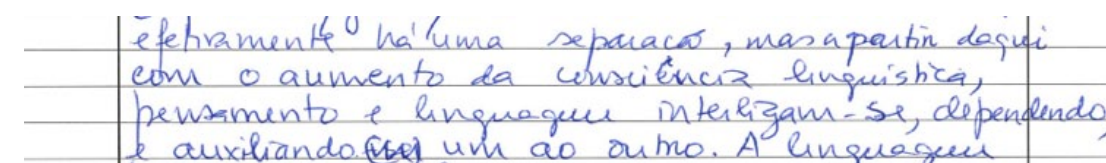 efetivamente há uma separacao, mas a partir daqui
com o aumento da consciência linguistica,
pensamento e linguagem interligam-se, dependendo
e auxiliando um ao outro. A linguagem